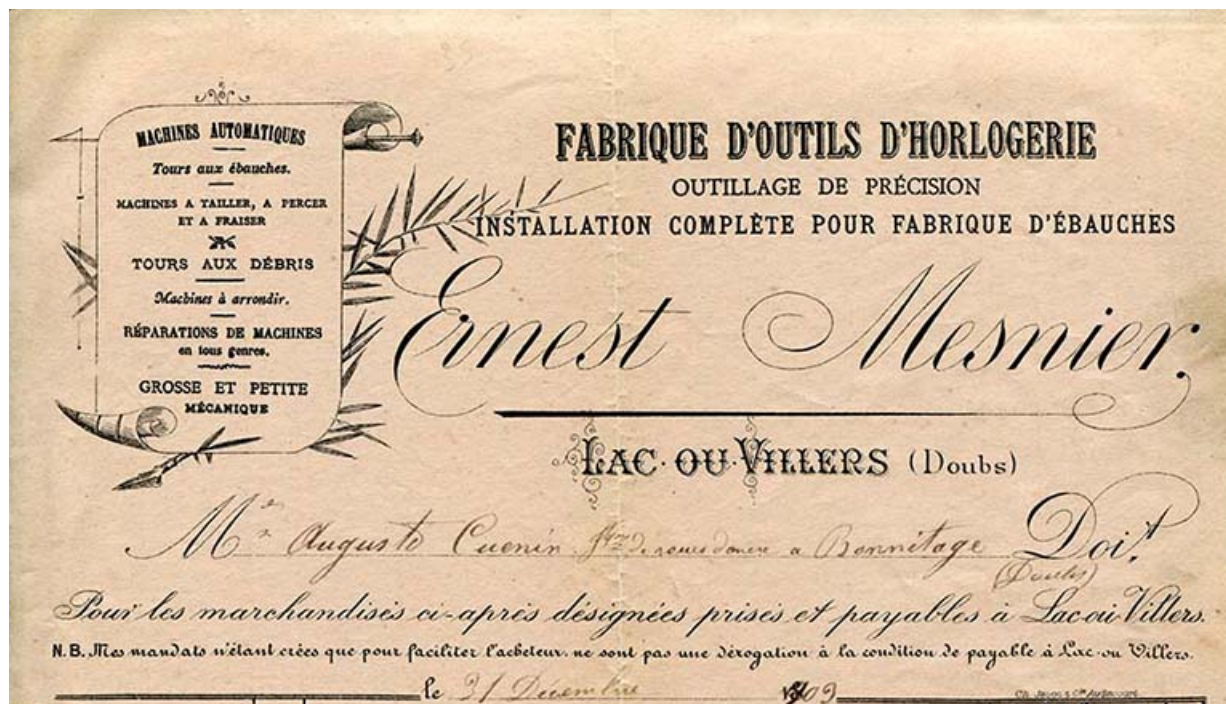 MACHINES AUTOMATIQUES
Tours aux ébauches.
MACHINES A TAILLER, A PERCER
ET A FRAISER
TOURS AUX DÉBRIS
Machines à arrondir.
RÉPARATIONS DE MACHINES
en tous genres.
GROSSE ET PETITE
MÉCANIQUE
FABRIQUE D'OUTILS D'HORLOGERIE
OUTILLAGE DE PRÉCISION
INSTALLATION COMPLÈTE POUR FABRIQUE D'ÉBAUCHES
Ernest Mesnier,
LAC·OU·VILLERS (Doubs)
Mr Auguste Cuenin a Bonnétage Doit
(Doubs)
Pour les marchandises ci-après désignées prises et payables à Lac-ou-Villers.
N.B. Mes mandats n'étant crées que pour faciliter l'acheteur, ne sont pas une dérogation à la condition de payable à Lac-ou Villers.
le 31 Décembre 1903